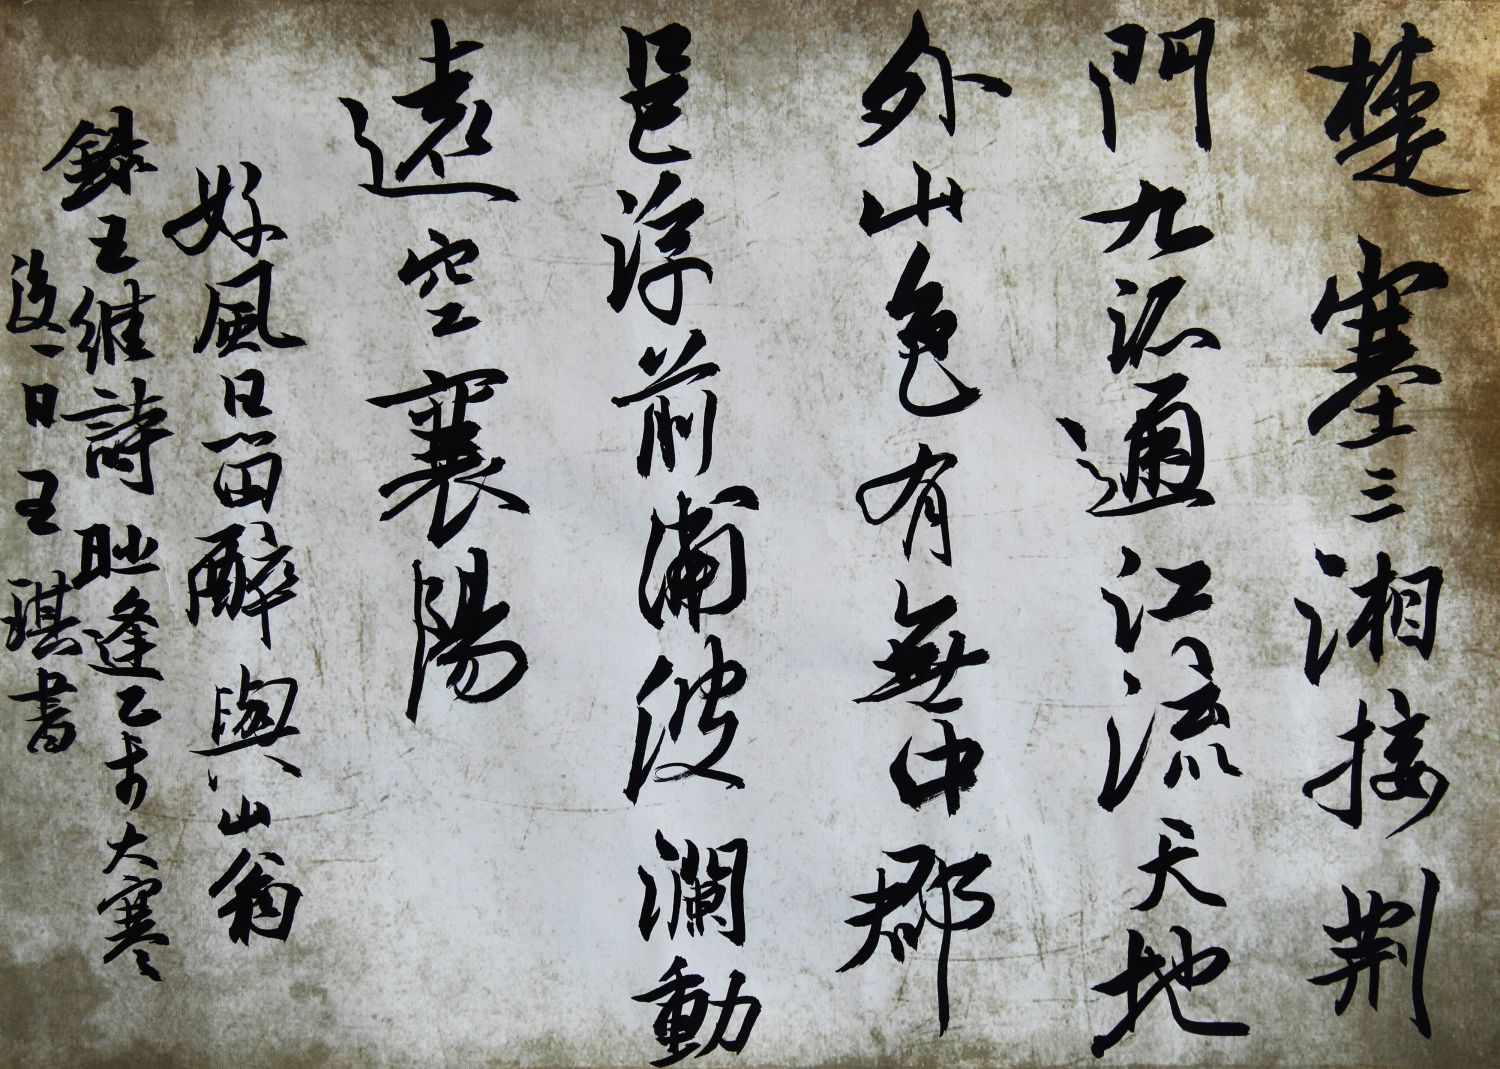 楚塞三湘接荆
門九派通江流天地
外山色有無中郡
邑浮前浦波瀾動
遠空襄陽
好風日留醉與山翁
錄王維詩時逢乙大寒
後一日王琪書